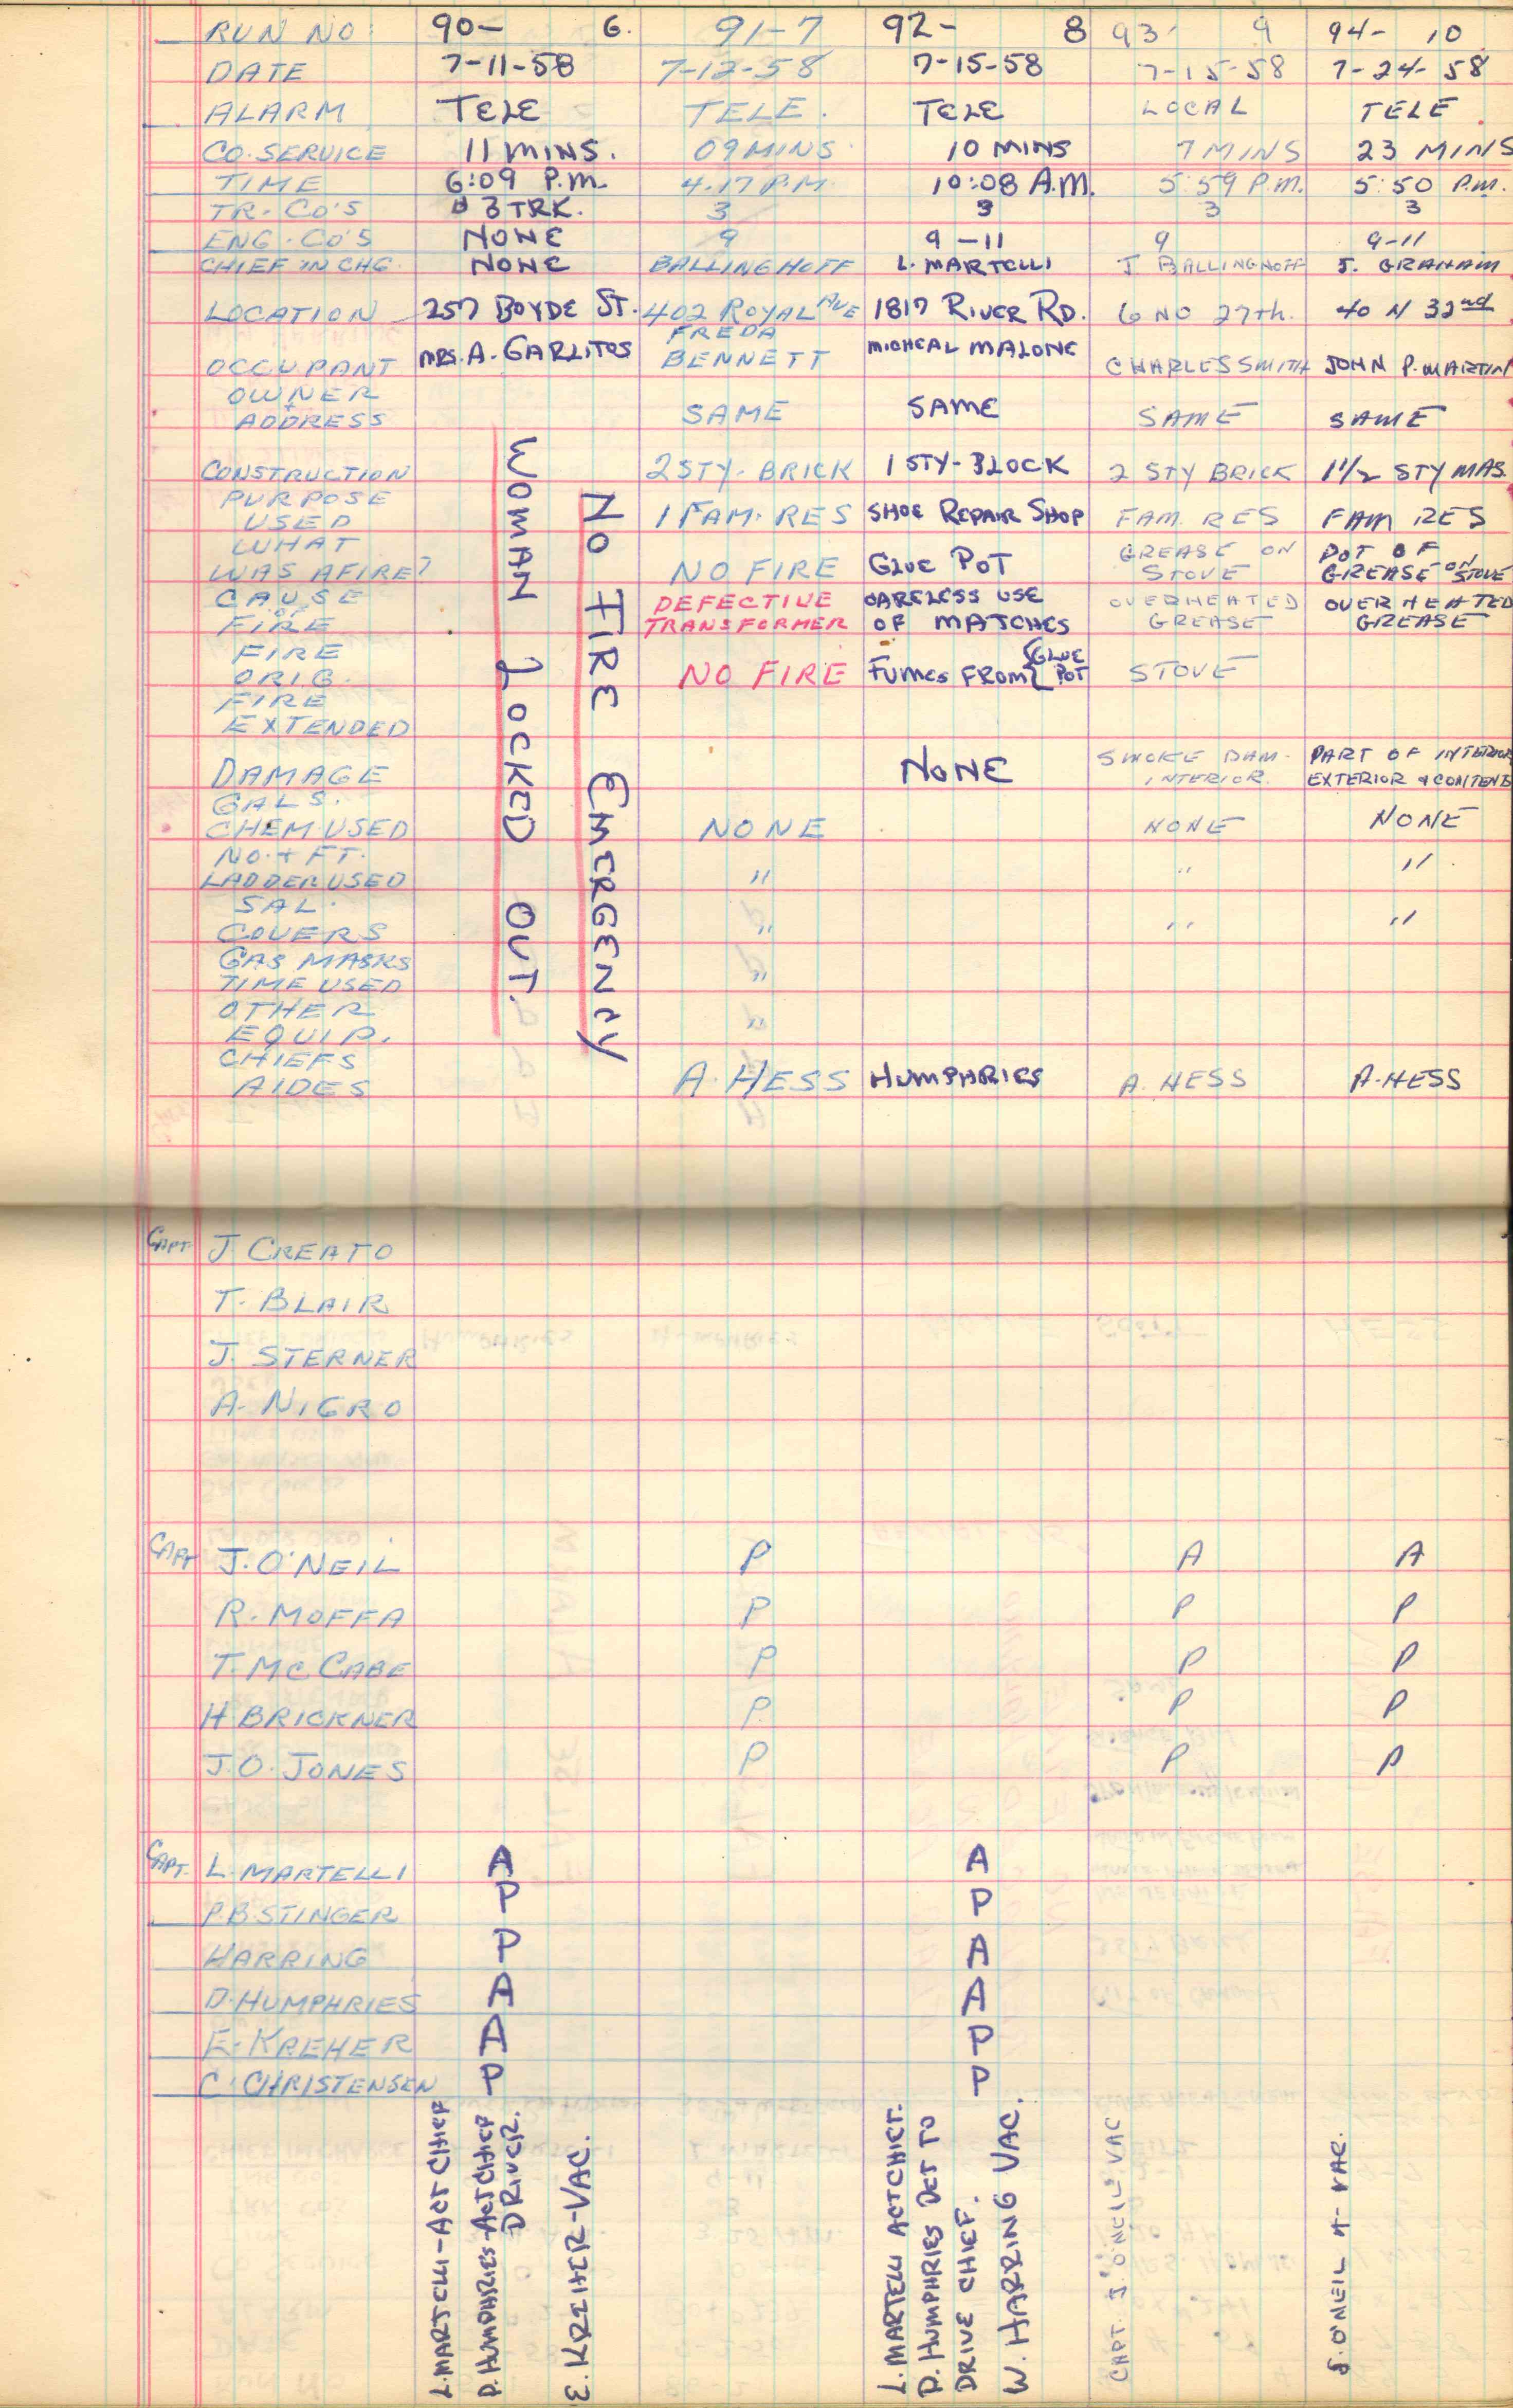 RUN NO: 90- 6. 91-7 92- 8 93- 9 94- 10
DATE 7-11-58 7-12-58 7-15-58 7-15-58 7-24-58
ALARM TELE TELE. TELE LOCAL TELE.
CO. SERVICE 11 MINS. 09 MINS. 10 MINS 7 MINS 23 MINS
TIME 6:09 P.M. 4.17 P.M 10:08 A.M. 5:59 P.M. 5:50 P.M.
TR. CO'S 3 TRK. 3 3 3 3
ENG. CO'S NONE 9 9-11 9 9-11
CHIEF IN CHG. NONE BALLINGHOFF L. MARTELLI J BALLINGHOFF J. GRAHAM
LOCATION 257 BOYDE ST. 402 ROYAL AVE 1817 RIVER RD. 6 NO 27th. 40 N 32nd
OCCUPANT MRS. A. GARLITOS FREDA BENNETT MICHEAL MALONE CHARLES SMITH JOHN P. MARTIN
OWNER
+
ADDRESS SAME SAME SAME SAME
CONSTRUCTION 2 STY- BRICK 1 STY-BLOCK 2 STY BRICK 1 1/2 STY MAS.
PURPOSE
USED 1 FAM. RES SHOE REPAIR SHOP FAM. RES FAM RES
WHAT
WAS AFIRE? NO FIRE GLUE POT GREASE ON STOVE POT OF GREASE ON STOVE
CAUSE DEFECTIVE CARELESS USE OVERHEATED OVERHEATED
OF
FIRE TRANSFORMER OF MATCHES GREASE GREASE
FIRE
ORIG. NO FIRE FUMES FROM GLUE POT STOVE
FIRE
EXTENDED
DAMAGE NONE SMOKE DAM. INTERIOR. PART OF INTERIOR EXTERIOR & CONTENTS
GALS.
CHEM. USED NONE NONE NONE
NO. + FT.
LADDER USED " " "
SAL.
COVERS " " "
GAS MASKS
TIME USED "
OTHER
EQUIP. "
CHIEFS
AIDES A. HESS HUMPHRIES A. HESS A. HESS
WOMAN LOCKED OUT.
NO FIRE EMERGENCY
CAPT. J CREATO
T. BLAIR
J. STERNER
A. NIGRO
CAPT J. O'NEIL P A A
R. MOFFA P P P
T. MC CABE P P P
H BRICKNER P P P
J. O. JONES P P P
CAPT. L. MARTELLI A A
P. B. STINGER P P
HARRING P A
D. HUMPHRIES A A
E. KREHER A P
C. CHRISTENSEN P P
L. MARTELLI-ACT CHIEF
D. HUMPHRIES-ACT CHIEF
DRIVER.
E. KREHER-VAC.
L. MARTELLI ACT CHIEF.
D. HUMPHRIES DET TO
DRIVE CHIEF.
W. HARRING VAC.
CAPT. J. O'NEIL VAC
J. O'NEIL VAC.